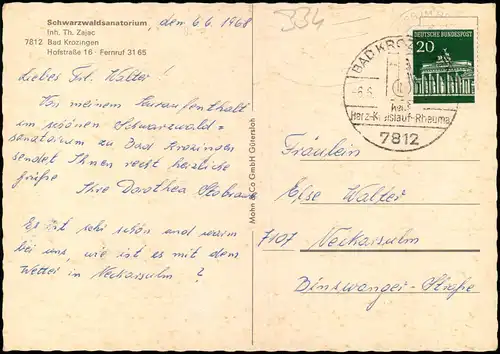 Schwarzwaldsanatorium,
Inh. Th. Zajac
7812 Bad Krozingen
Hofstraße 16 · Fernruf 31 65
den 6.6. 1968
Liebes Frl. Walter!
Von meinem Kuraufenthalt
im schönen Schwarzwald=
sanatorium zu Bad Krozingen
sendet Ihnen recht herzliche
Grüße
Ihre Dorothea
Es ist sehr schön und warm
bei uns, wie ist es mit dem
Wetter in Neckarsulm ?
Mohn & Co GmbH Gütersloh
334
BAD KROZ
-6.6.
heilt
Herz-Kreislauf-Rheuma
7812
DEUTSCHE BUNDESPOST
20
Fräulein
Else Walter
7107 Neckarsulm
Binswanger-Straße